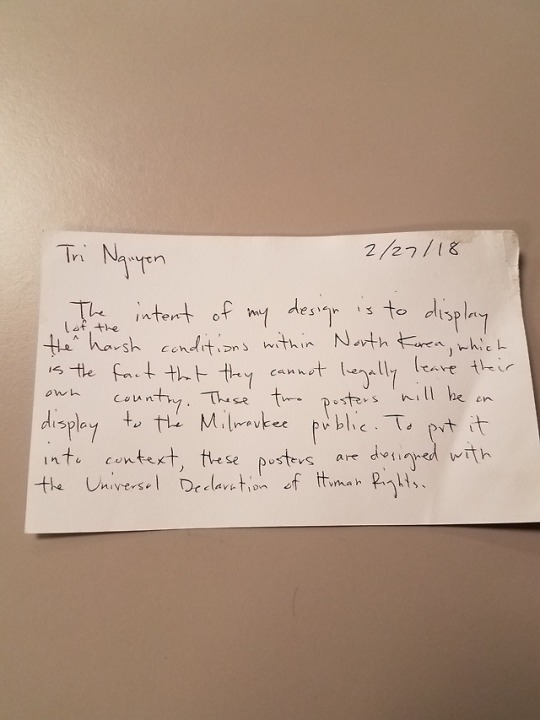 Tri Nguyen 2/27/18
The intent of my design is to display
1 of the
the ^ harsh conditions within North Korea, which
is the fact that they cannot legally leave their
own country. These two posters will be on
display to the Milwaukee public. To put it
into context, these posters are designed with
the Universal Declaration of Human Rights.